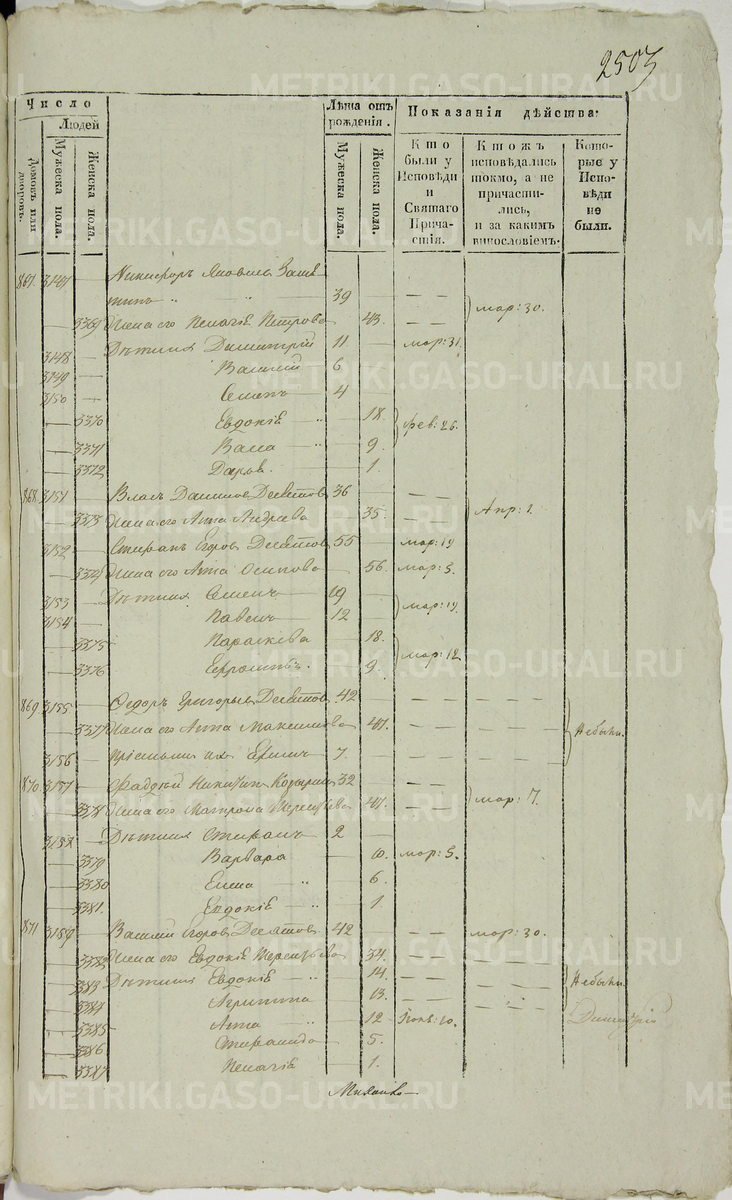 2503
Число
Людей
Домовъ или дворовъ.
Мужеска пола.
Женска пола.
Лѣта отъ рожденія.
Мужеска пола.
Женска пола.
Показанія дѣйства:
Кто были у Исповѣди и Святаго Причастія.
Ктожъ исповѣдались токмо, а не причастились, и за какимъ винословіемъ.
Которые у Исповѣди не были.
867. 3147 Никифоръ Яковлевъ
39 — — мар: 30.
3369 Жена его Пелагія Петрова 43. — —
3148 Дѣти ихъ Димитрій 11 мар: 31.
3149 Василій 6
3150 Семенъ 4
3370 Евдокія 18. фев: 26.
3371 Васса 9.
3372 Дарья 1.
868. 3151 Власъ Десятовъ 36 — — Апр: 1.
3373 Жена его Анна Андреева 35. — —
3152 Стефанъ Егоровъ Десятовъ 55 мар: 19
3374 Жена его Анна Осипова 56. мар: 5.
3153 Дѣти ихъ Семенъ 19 мар: 19.
3154 Павелъ 12
3375 Параскева 18. мар: 12
3376 9.
869. 3155 Федоръ Григорьевъ Десятовъ 42 — — — — Небыли.
3377 Жена его Анна Максимова 41. — — — —
3156 7. — — — —
870. 3157 Фаддей Никитинъ 32 — — мар: 7.
3378 Жена его Матрона Терентьева 41. — —
3158 Дѣти ихъ Стефанъ 2
3379 Варвара мар: 5.
3380 6.
3381. Евдокія 1
871 3159 Василій Егоровъ Десятовъ 42 — — мар: 30.
3382 Жена его Евдокія Терентьева 34. — —
3383 Дѣти ихъ Евдокія 14. — — — — Небыли.
3384 13. — — — —
3385 Анна 12 Димитрій
3386 Стефанида 5.
3387 Пелагія 1.
METRIKI.GASO-URAL.RU